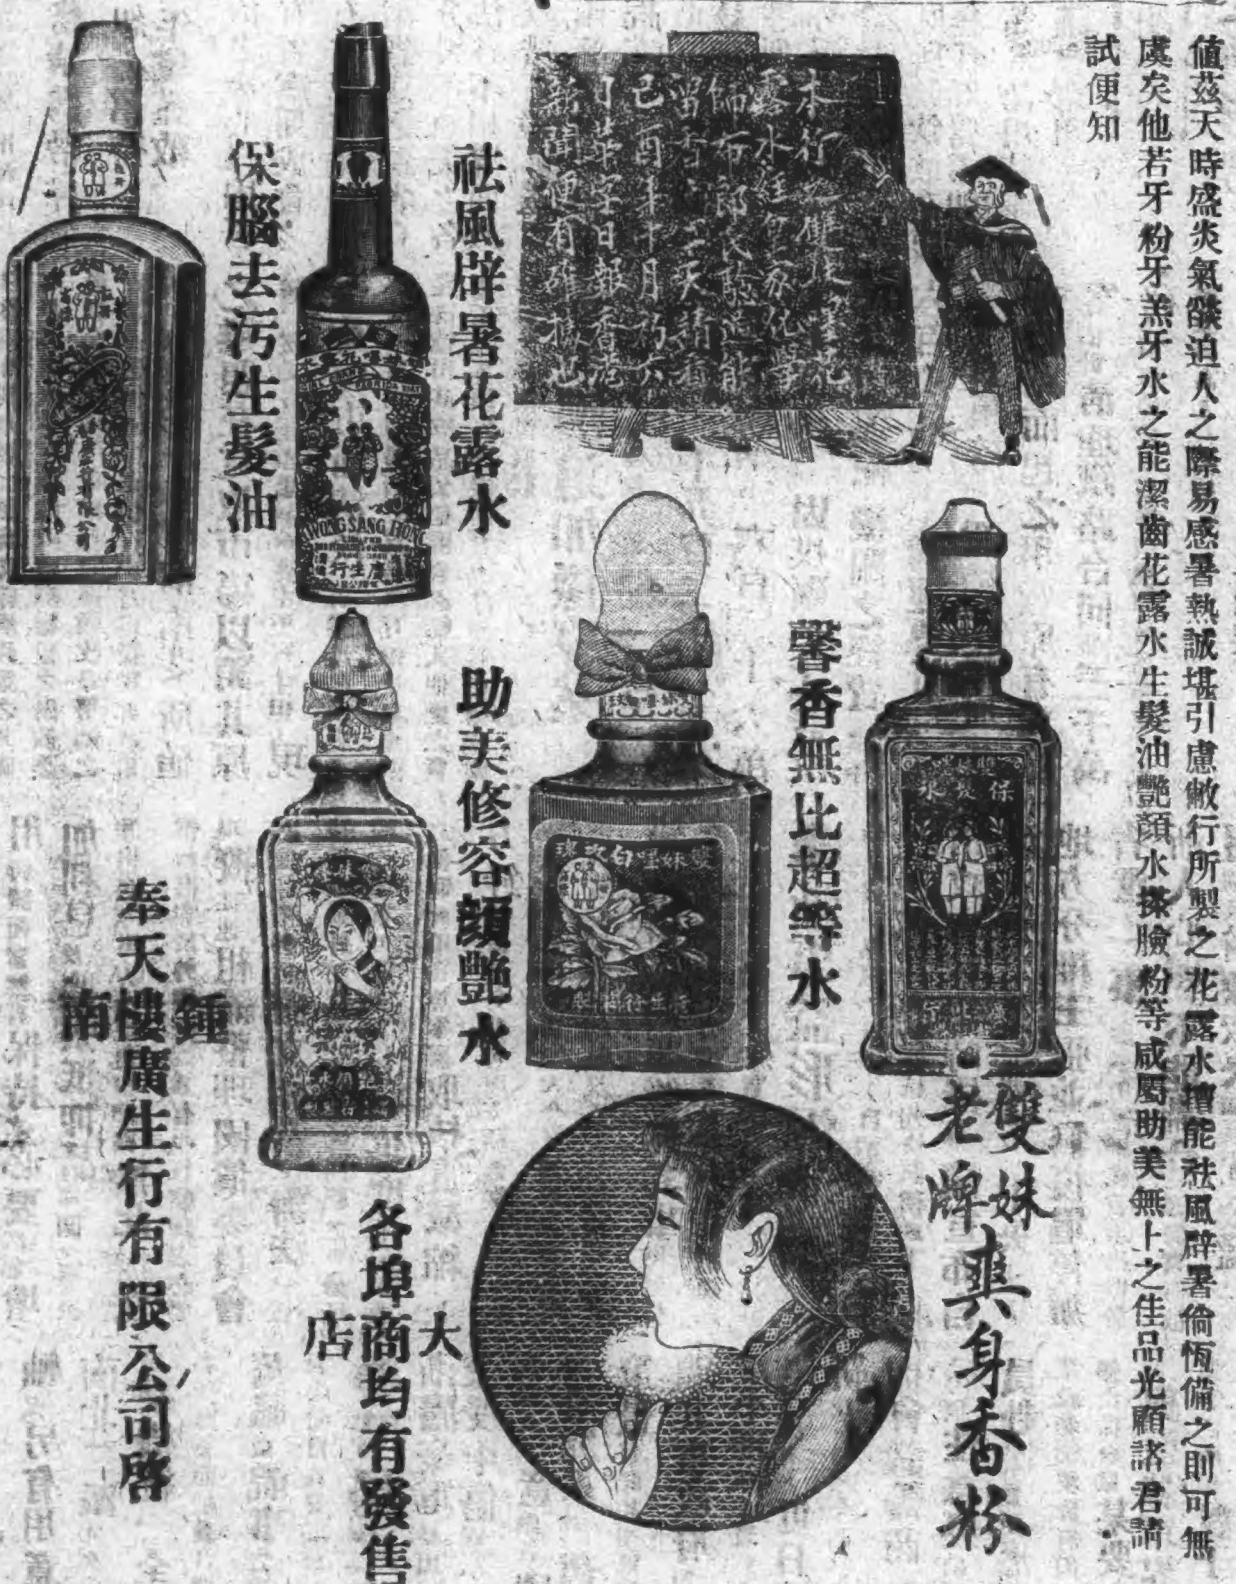 值茲天時盛炎氣燄迫人之際易感暑熱誠堪引慮敝行所製之花露水擅能祛風辟暑倘恆備之則可無
虞矣他若牙粉牙羔牙水之能潔齒花露水生髮油艷顔水搽臉粉等咸屬助美無上之佳品光顧諸君請
試便知
本行之雙妹嘜花
露水經皇家化學
師布郎氏驗過能
留香十三天請看
己酉年十月初六
日華字日報香港
新聞便有確據也
祛風辟暑花露水
保腦去污生髮油
KWONG SANG HONG
廣生行
馨香無比超等水
助美修容顔艷水
保髮水
雙妹
老牌
爽身香粉
各埠大商店均有發售
奉天鍾樓南廣生行有限公司啓